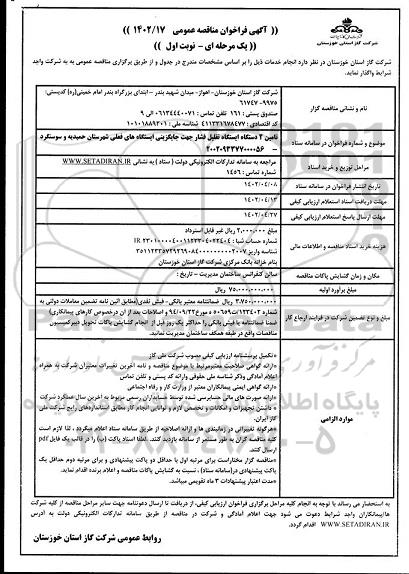 (( آگهی فراخوان مناقصه عمومی ۱۴۰۲/۱۷ ))
(( یک مرحله ای - نوبت اول ))
شرکت گاز استان خوزستان
شرکت گاز استان خوزستان در نظر دارد انجام خدمات ذیل را بر اساس مشخصات مندرج در جدول و از طریق برگزاری مناقصه عمومی به شرکت واجد
شرایط واگذار نماید.
نام و نشانی مناقصه گزار
شرکت گاز استان خوزستان - اهواز- میدان شهید بندر - ابتدای بزرگراه بندر امام خمینی(ره) کدپستی:
۶۱۷۴۷-۹۹۷۵
صندوق پستی: ۱۶۱ تلفن تماس: ۰۶۱۳۴۴۴۰۰۷۱ الی ۹
کد اقتصادی: ۴۱۱۳۳۱۶۷۸۴۷۷ شناسه ملی:
موضوع و شماره فراخوان در سامانه ستاد
تامین ۲ دستگاه ایستگاه تقلیل فشار جهت جایگزینی ایستگاه های فعلی شهرستان حمیدیه و سوسنگرد
- ۲۰۰۲۰۹۳۳۷۷۰۰۰۰۵۶
مراحل توزیع و خرید اسناد
مراجعه به سامانه تدارکات الکترونیکی دولت ( ستاد ) به نشانی WWW.SETADIRAN.IR
شماره تماس: ۱۴۵۶
تاریخ انتشار فراخوان در سامانه ستاد
۱۴۰۲/۰۴/۰۸
مهلت دریافت اسناد استعلام ارزیابی کیفی
۱۴۰۲/۰۴/۱۳
مهلت ارسال پاسخ استعلام ارزیابی کیفی
۱۴۰۲/۰۴/۲۷
هزینه خرید اسناد مناقصه و اطلاعات مالی
مبلغ ۲.۰۰۰.۰۰۰ ریال غیر قابل استرداد
شماره حساب شبا:
شناسه واریز
بنام خزانه بانک مرکزی شرکت گاز استان خوزستان
مکان و زمان گشایش پاکات مناقصه
سالن کنفرانس ساختمان مدیریت - تاریخ:
مبلغ برآورد اولیه
۷۵.۰۰۰.۰۰۰.۰۰۰ ریال
مبلغ و نوع تضمین شرکت در فرایند ارجاع کار
۳.۷۵۰.۰۰۰.۰۰۰ ریال ضمانتنامه معتبر بانکی - فیش نقدی(مطابق آئین نامه تضمین معاملات دولتی به
شماره ۱۲۳۴۰۲/ت۵۰۶۵۹ه مورخ ۹۴/۰۹/۲۲ و اصلاحات بعد از آن درخصوص کارهای پیمانکاری)
ضمنا ضمانتنامه یا فیش بانکی را حداکثر یک روز قبل از انجام گشایش پاکات تحویل دبیرکمیسیون
مناقصات واقع در طبقه همکف ساختمان مدیریت نمائید.
موارد الزامی
•تکمیل پرسشنامه ارزیابی کیفی مصوب شرکت ملی گاز
•ارائه گواهی صلاحیت معتبرمرتبط با موضوع مناقصه و نامه آخرین تغییرات معتبران شرکت به همراه
اعلام آمادگی وذکر شناسه ملی حقوقی وارائه کد پستی و تلفن تماس
•ارائه گواهی ایمنی پیمانکاران معتبر از وزارت کار و رفاه اجتماعی
•ارائه صورت های مالی حسابرسی شده توسط حسابداران رسمی مربوط به آخرین سال عملکرد شرکت
• داشتن تجهیزات و امکانات و تخصص لازم و توانایی انجام کار مطابق استانداردهای رایج شرکت ملی
گاز ایران.
•هرگونه تغییراتی در زمانبندی ها و ارائه اصلاحیه از طریق سامانه ستاد اعلام میگردد ، لذا لازم است
کلیه مناقصه گران به طور مستمر از سامانه بازدید کنند. لطفا اسناد پاکت (ب) را در قالب یک فایل pdf
ارسال کنند.
•مناقصه گزار مختاراست برای مرتبه اول با حداقل دو پاکت پیشنهادی و برای مرتبه دوم حداقل یک
پاکت پیشنهادی در(سامانه ستاد) ، نسبت به گشایش پاکات مناقصه و اعلام برنده اقدام نماید.
•مدت اعتبار پیشنهادات ۳ ماه تقویمی میباشد.
به استحضار می رساند با توجه به انجام کلیه مراحل برگزاری فراخوان ارزیابی کیفی، از دریافت تا ارسال دعوتنامه جهت سایر مراحل مناقصه از کلیه شرکت
ها/پیمانکاران واجد شرایط دعوت می شود جهت اعلام آمادگی و شرکت در مناقصه از طریق سامانه تدارکات الکترونیکی دولت به آدرس
WWW.SETADIRAN.IR اقدام گردد.
روابط عمومی شرکت گاز استان خوزستان